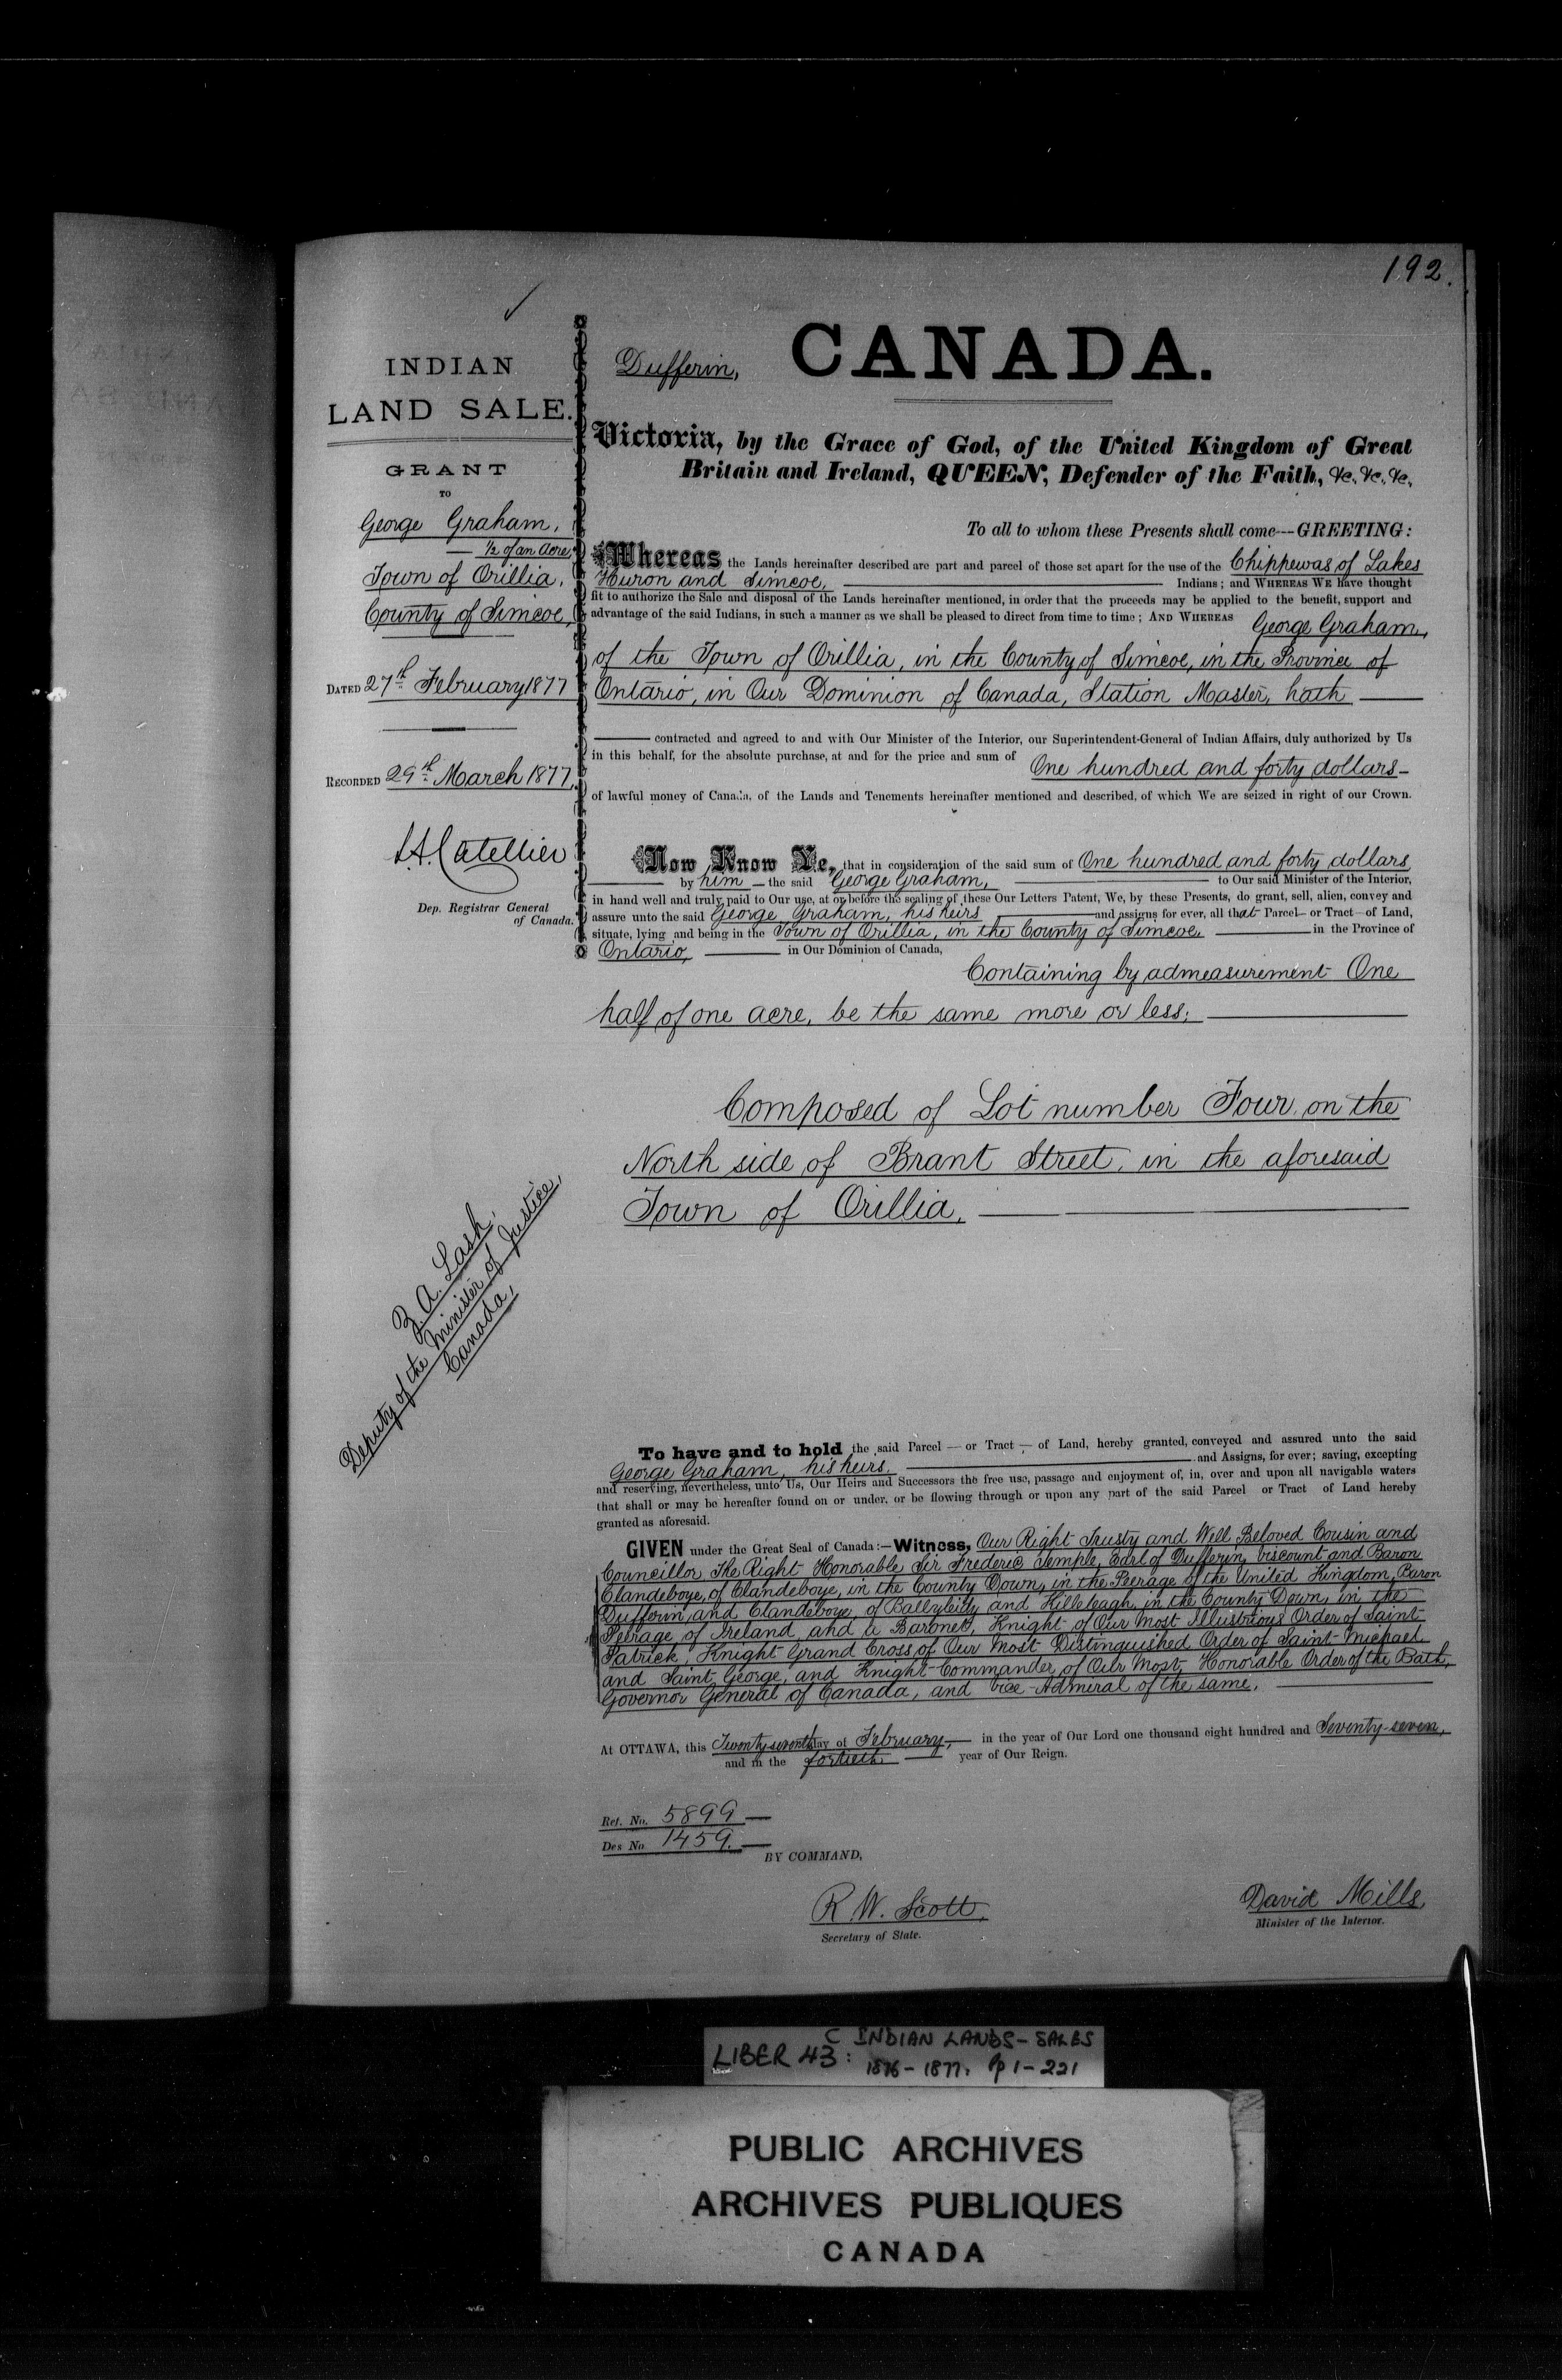 192.
INDIAN
LAND SALE.
GRANT
TO
George Graham,
— 1/2 of an Acre,
Town of Orillia,
County of Simcoe,
DATED 27th February 1877
RECORDED 29th March 1877,
Dep. Registrar General
of Canada.
Z. A. Lash,
Deputy of the Minister of Justice,
Canada,
Dufferin, CANADA.
Victoria, by the Grace of God, of the United Kingdom of Great
Britain and Ireland, QUEEN, Defender of the Faith, &c. &c. &c.
To all to whom these Presents shall come---GREETING:
Whereas the Lands hereinafter described are part and parcel of those set apart for the use of the Chippewas of Lakes
Huron and Simcoe, Indians; and WHEREAS WE have thought
fit to authorize the Sale and disposal of the Lands hereinafter mentioned, in order that the proceeds may be applied to the benefit, support and
advantage of the said Indians, in such a manner as we shall be pleased to direct from time to time; AND WHEREAS George Graham,
of the Town of Orillia, in the County of Simcoe, in the Province of
Ontario, in Our Dominion of Canada, Station Master, hath
contracted and agreed to and with Our Minister of the Interior, our Superintendent-General of Indian Affairs, duly authorized by Us
in this behalf, for the absolute purchase, at and for the price and sum of One hundred and forty dollars
of lawful money of Canada, of the Lands and Tenements hereinafter mentioned and described, of which We are seized in right of our Crown.
Now Know Ye, that in consideration of the said sum of One hundred and forty dollars
by him — the said George Graham, to Our said Minister of the Interior,
in hand well and truly paid to Our use, at or before the sealing of these Our Letters Patent, We, by these Presents, do grant, sell, alien, convey and
assure unto the said George Graham, his heirs and assigns for ever, all that Parcel— or Tract—of Land,
situate, lying and being in the Town of Orillia, in the County of Simcoe, in the Province of
Ontario, in Our Dominion of Canada,
Containing by admeasurement One
half of one acre, be the same more or less;
Composed of Lot number Four on the
North side of Brant Street, in the aforesaid
Town of Orillia,
To have and to hold the said Parcel — or Tract — of Land, hereby granted, conveyed and assured unto the said
George Graham, his heirs, and Assigns, for ever; saving, excepting
and reserving, nevertheless, unto Us, Our Heirs and Successors the free use, passage and enjoyment of, in, over and upon all navigable waters
that shall or may be hereafter found on or under, or be flowing through or upon any part of the said Parcel or Tract of Land hereby
granted as aforesaid.
GIVEN under the Great Seal of Canada:—Witness, Our Right Trusty and Well Beloved Cousin and
Councillor The Right Honorable Sir Frederic Temple, Earl of Dufferin, Viscount and Baron
Clandeboye, of Clandeboye, in the County Down, in the Peerage of the United Kingdom, Baron
Dufferin and Clandeboye, of Ballyleidy and Killeleagh, in the County Down, in the
Peerage of Ireland, and a Baronet, Knight of Our Most Illustrious Order of Saint
Patrick, Knight Grand Cross of Our Most Distinguished Order of Saint Michael
and Saint George, and Knight Commander of Our Most Honorable Order of the Bath,
Governor General of Canada, and Vice-Admiral of the same,
At OTTAWA, this Twenty seventh day of February, in the year of Our Lord one thousand eight hundred and Seventy-seven,
and in the fortieth year of Our Reign.
Ref. No. 5899
Des No 1459.
BY COMMAND,
R. W. Scott,
Secretary of State.
David Mills,
Minister of the Interior.
LIBER 43 C : INDIAN LANDS - SALES
1876 - 1877. Pp 1 - 221
PUBLIC ARCHIVES
ARCHIVES PUBLIQUES
CANADA